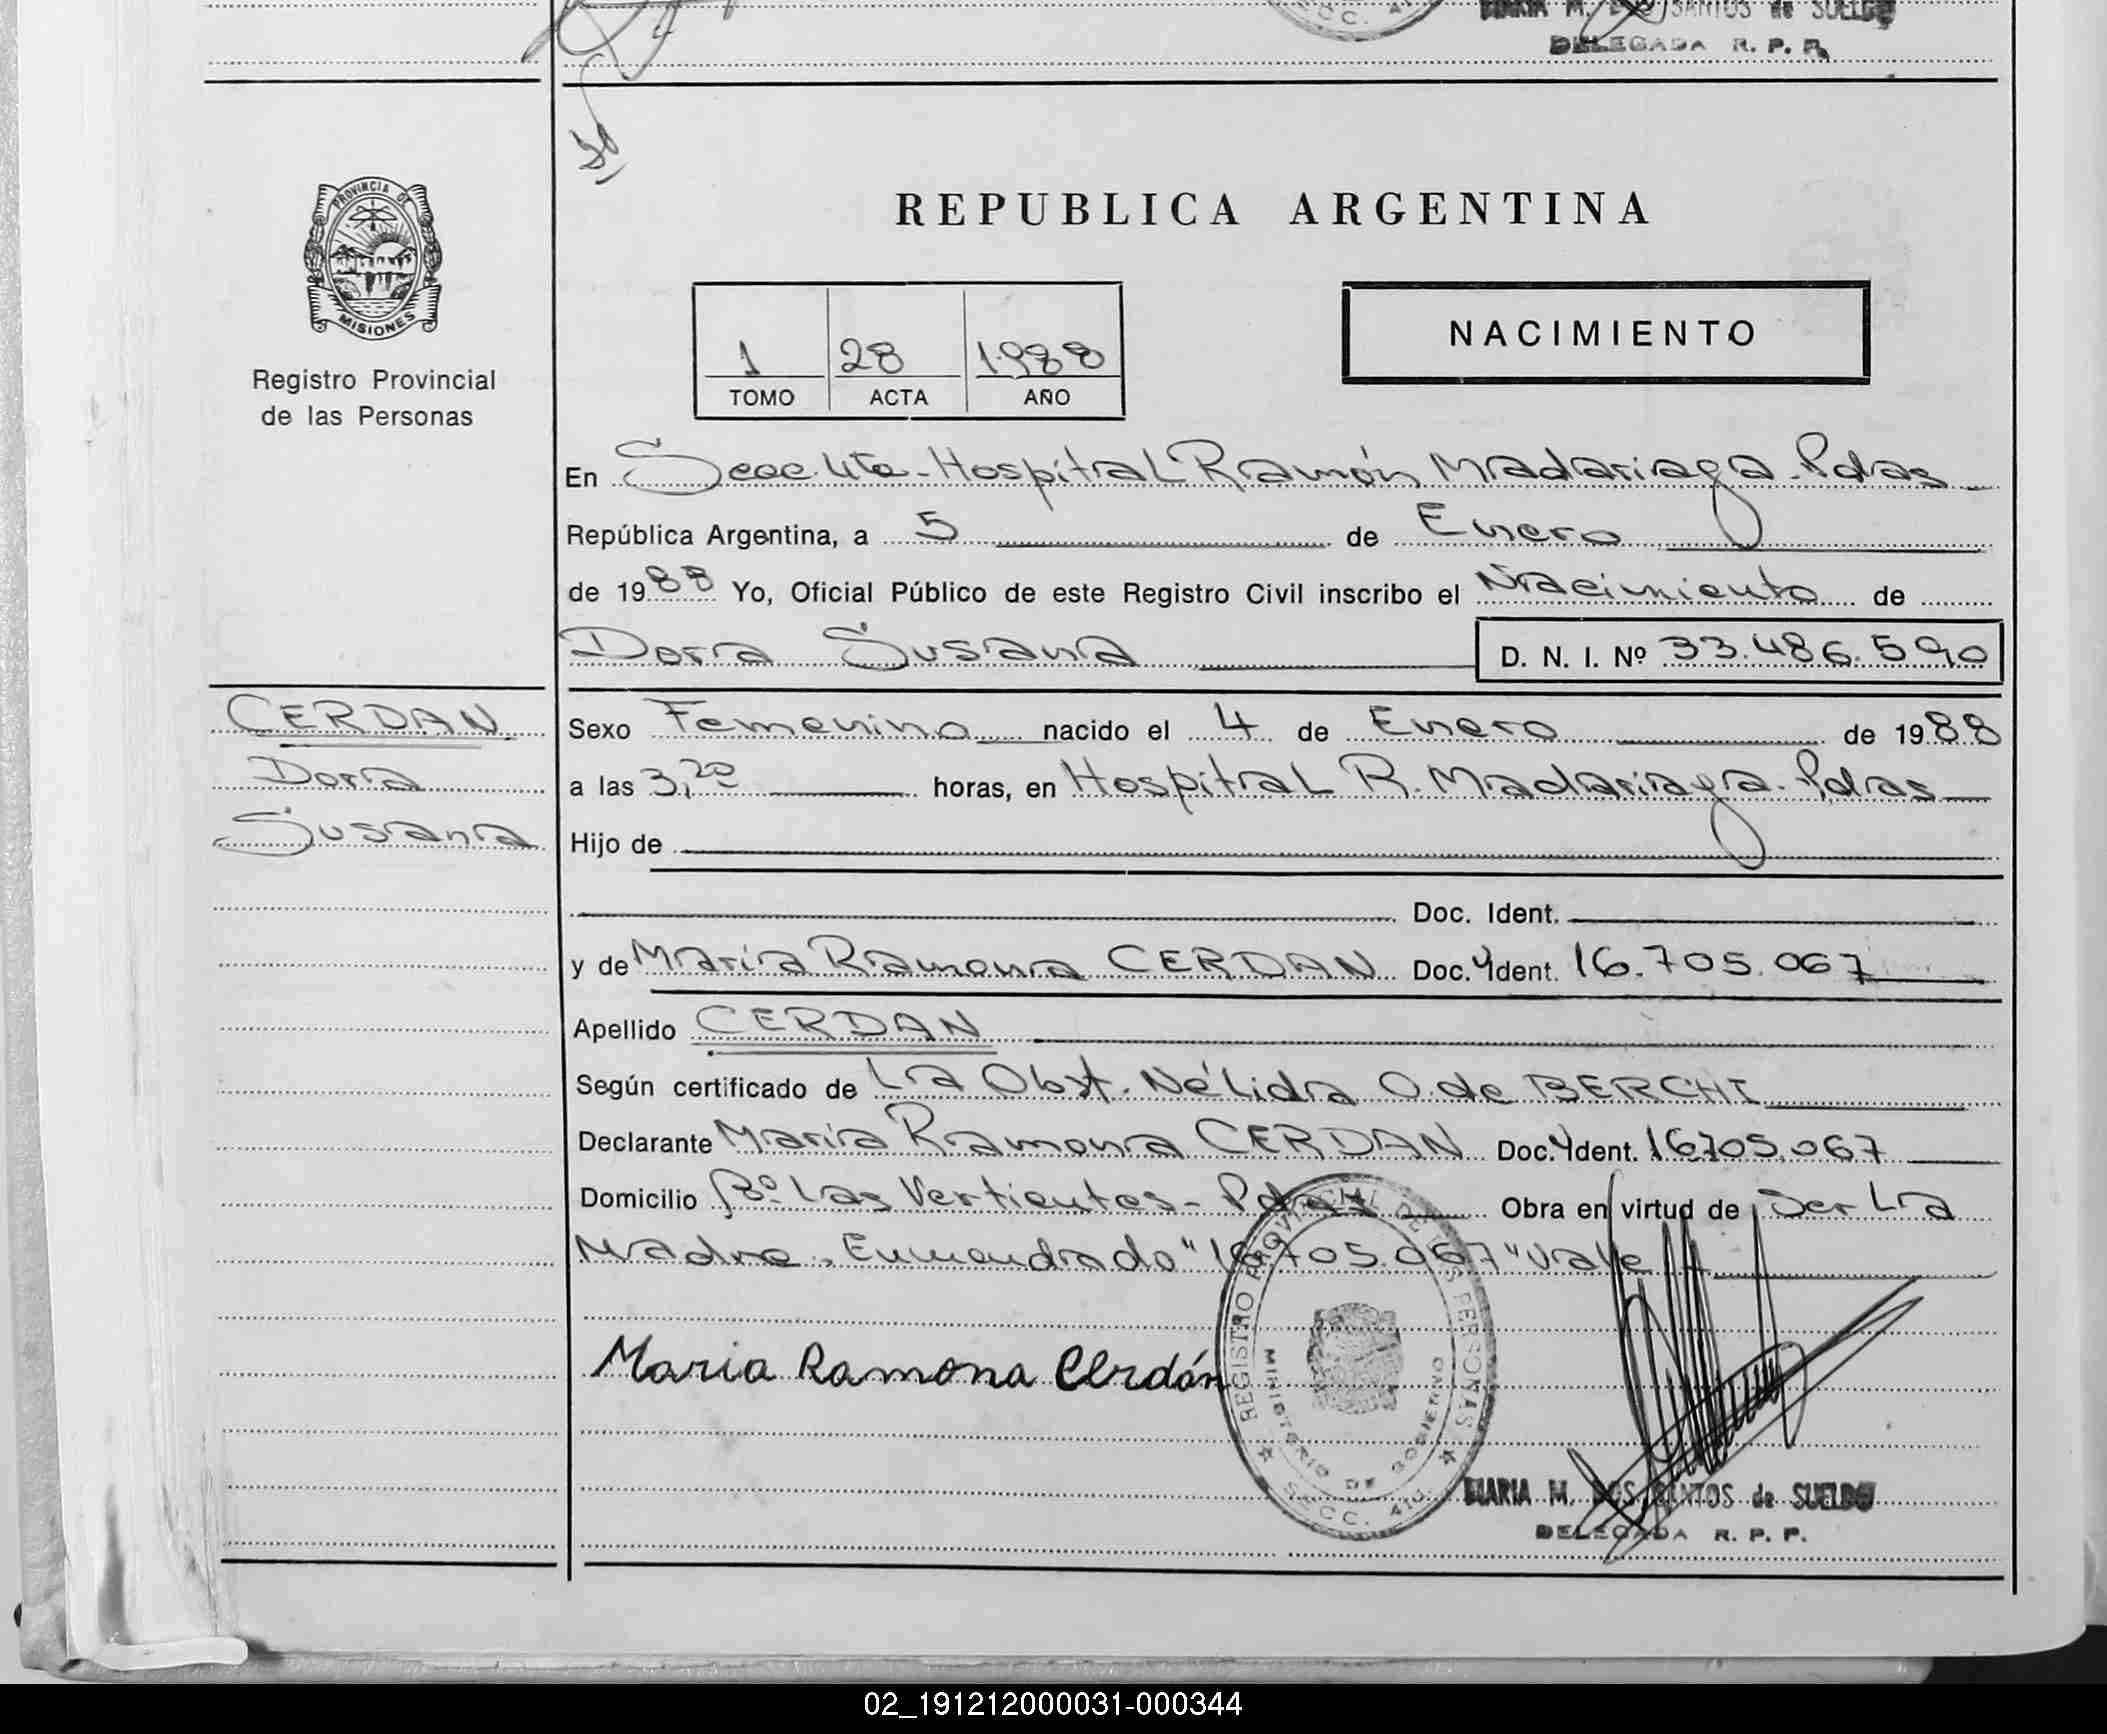 MARIA M. DOS SANTOS de SUELDO
DELEGADA R. P. P.
PROVINCIA DE
MISIONES
Registro Provincial
de las Personas
REPUBLICA ARGENTINA
1 28 1988
TOMO ACTA AÑO
NACIMIENTO
En Secc. 4ta - Hospital Ramón Madariaga - Pdas
República Argentina, a 5 de Enero
de 1988 Yo, Oficial Público de este Registro Civil inscribo el Nacimiento de
Dora Susana D. N. I. Nº 33.486.590
CERDAN
Dora
Susana
Sexo Femenino nacido el 4 de Enero de 1988
a las 3,20 horas, en Hospital R. Madariaga - Pdas
Hijo de
Doc. Ident.
y de María Ramona CERDAN Doc. Ident. 16.705.067
Apellido CERDAN
Según certificado de La Obst. Nélida O. de BERCHI
Declarante María Ramona CERDAN Doc. Ident. 16705.067
Domicilio Bº Las Vertientes - Pdas Obra en virtud de Ser La
Madre. Enmendado "16705.067" Vale
Maria Ramona Cerdán
REGISTRO PROVINCIAL DE LAS PERSONAS
MINISTERIO DE GOBIERNO
SECC. 4ta
MARIA M. DOS SANTOS de SUELDO
DELEGADA R. P. P.
02_191212000031-000344